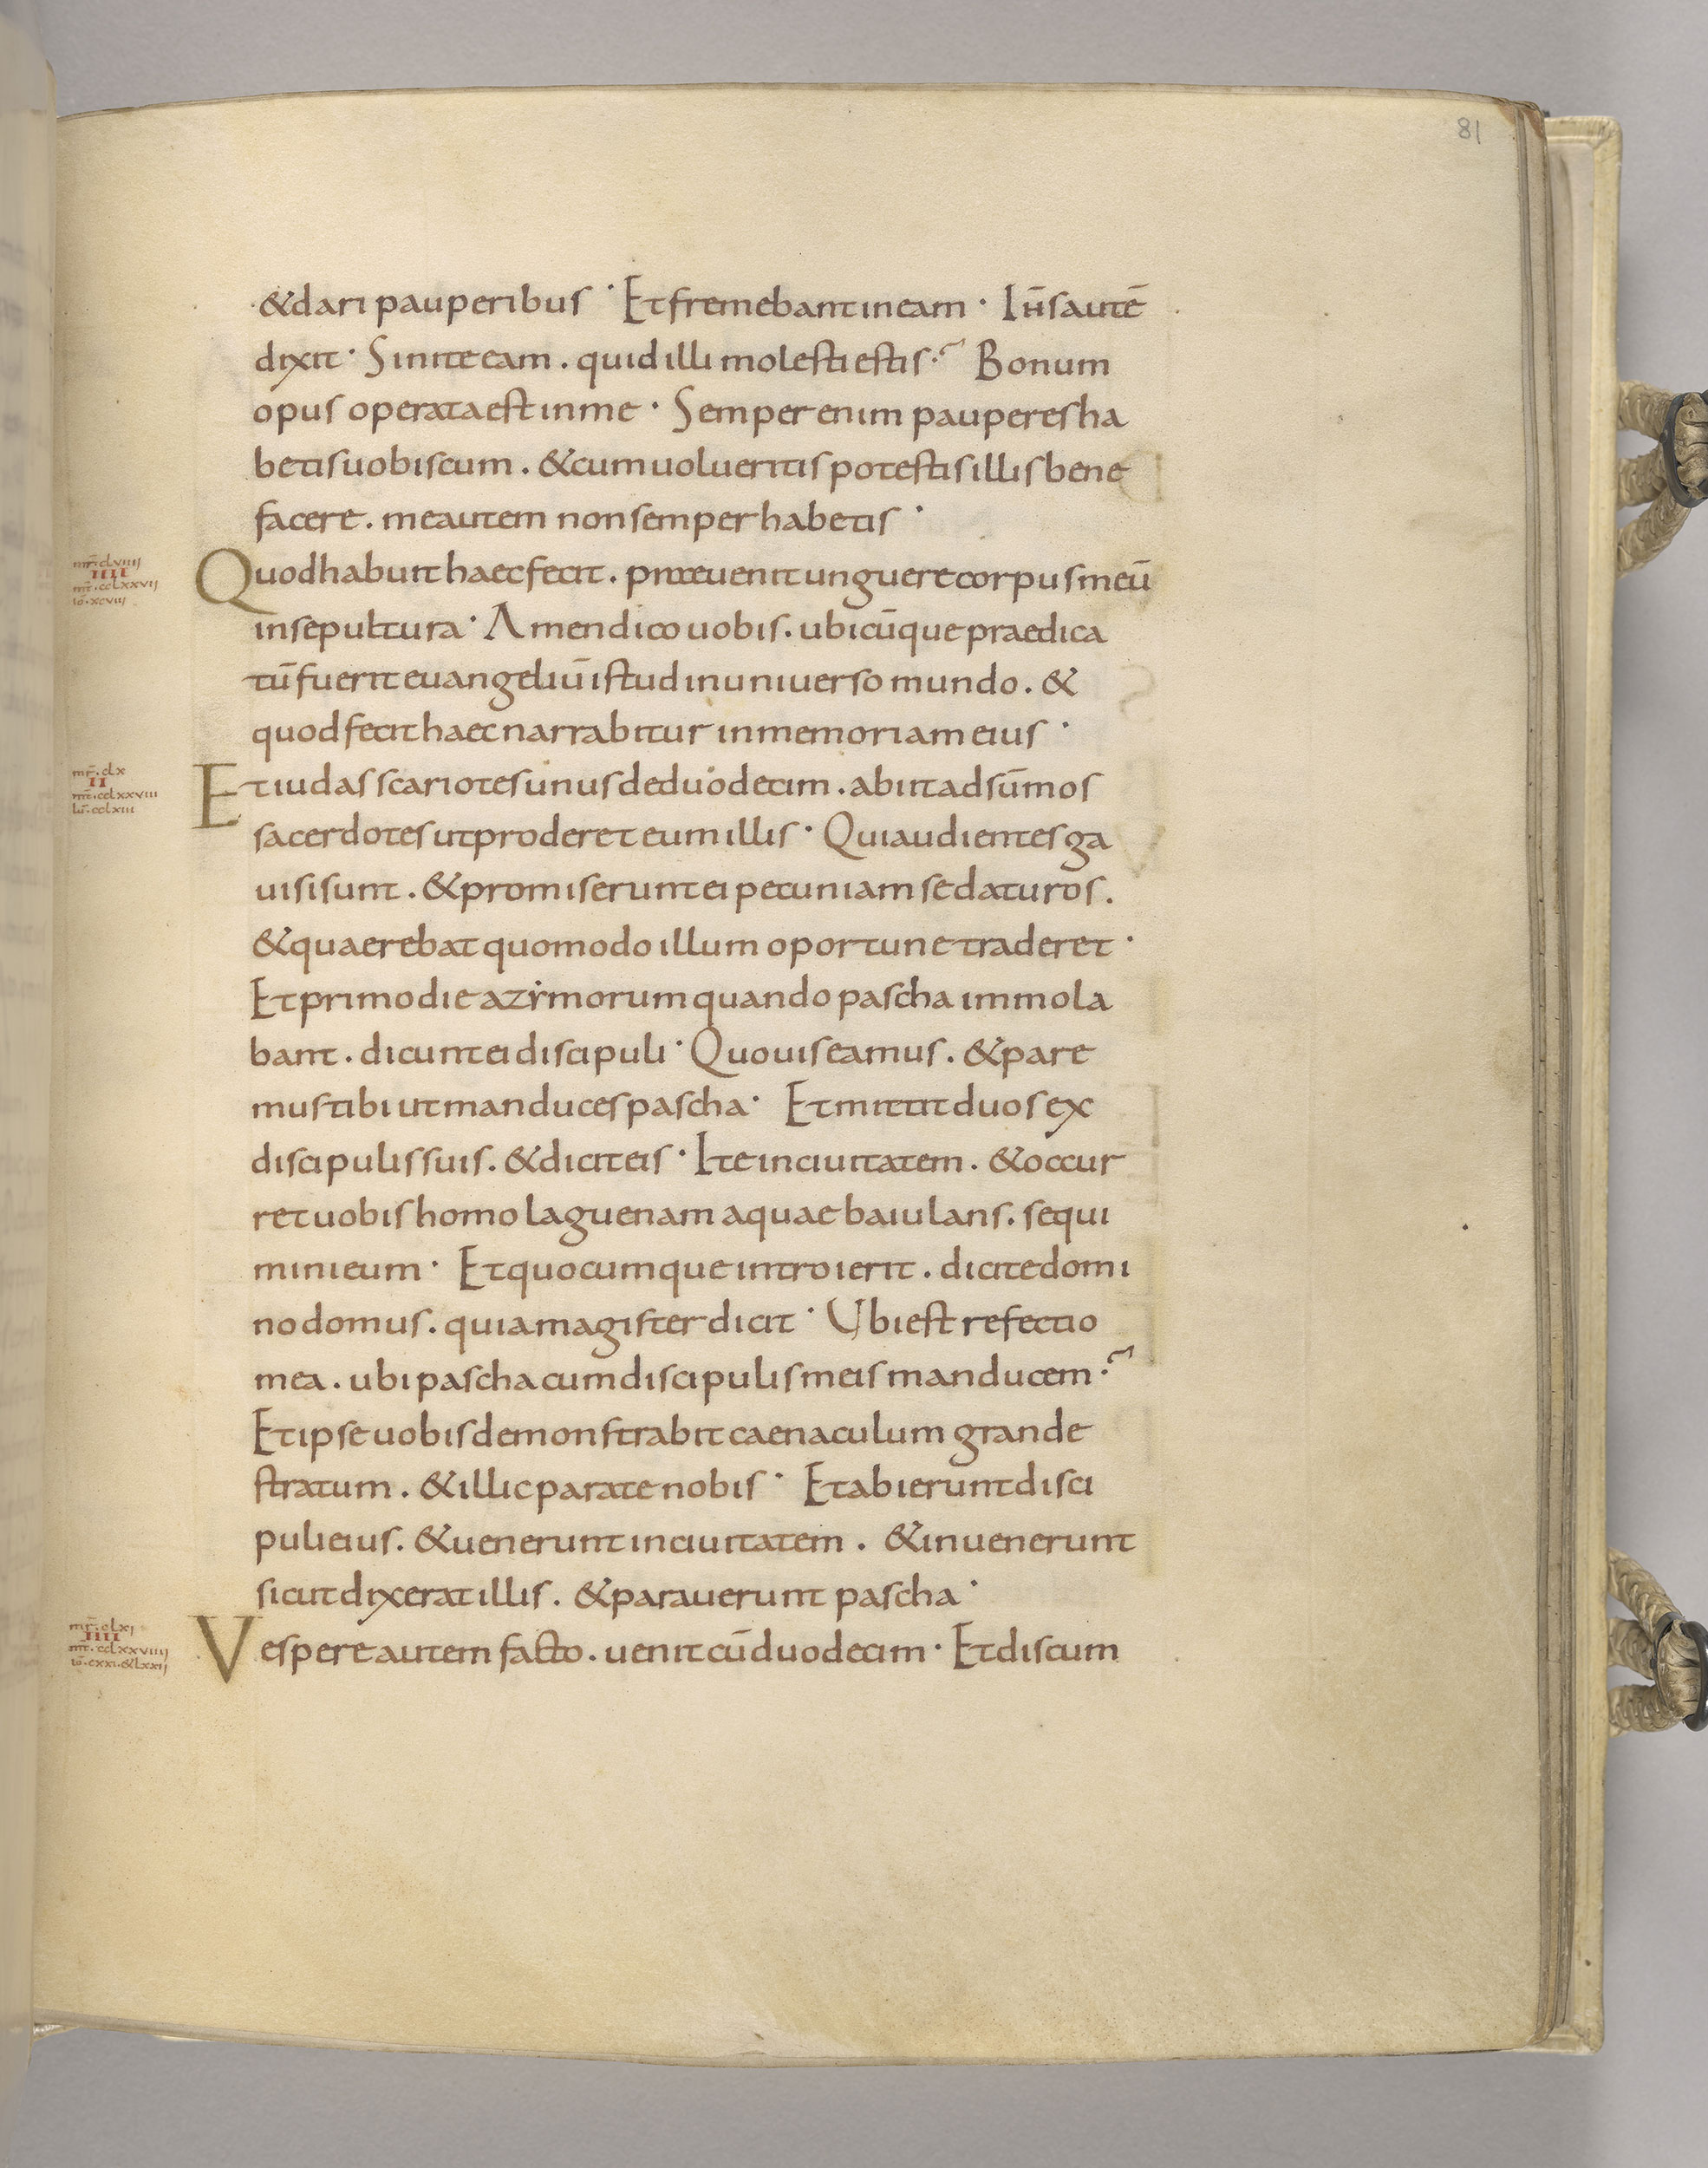 81
& dari pauperibus · Et fremebant in eam · Ih̄s autē
dixit · Sinite eam . quid illi molesti estis ? Bonum
opus operata est in me · Semper enim pauperes ha
betis uobiscum . & cum uolueritis potestis illis bene
facere . me autem non semper habetis ·
mr̄ . clviiii
IIII
mt̄ . cclxxvii
iō . xcviii
Quod habuit haec fecit . praeuenit unguere corpus meū
in sepultura · Amen dico uobis . ubicūque praedica
tū fuerit euangeliū istud in uniuerso mundo . &
quod fecit haec narrabitur in memoriam eius ·
mr̄ . clx
II
mt̄ . cclxxviii
lū . cclxiii
Et iudas scariotes unus de duodecim . abiit ad sūmos
sacerdotes ut proderet eum illis · Qui audientes ga
uisi sunt . & promiserunt ei pecuniam se daturos .
& quaerebat quomodo illum oportune traderet ·
Et primo die azẏmorum quando pascha immola
bant . dicunt ei discipuli · Quo uis eamus . & pare
mus tibi ut manduces pascha · Et mittit duos ex
discipulis suis . & dicit eis · Ite in ciuitatem . & occur
ret uobis homo laguenam aquae baiulans . sequi
mini eum · Et quocumque introierit . dicite domi
no domus . quia magister dicit · Ubi est refectio
mea . ubi pascha cum discipulis meis manducem ?
Et ipse uobis demonstrabit caenaculum grande
stratum . & illic parate nobis · Et abierunt disci
puli eius . & uenerunt in ciuitatem . & inuenerunt
sicut dixerat illis . & parauerunt pascha ·
mr̄ . clxi
IIII
mt̄ . cclxxviiii
iō . cxxi . & lxxii
Vespere autem facto . uenit cū duodecim · Et discum